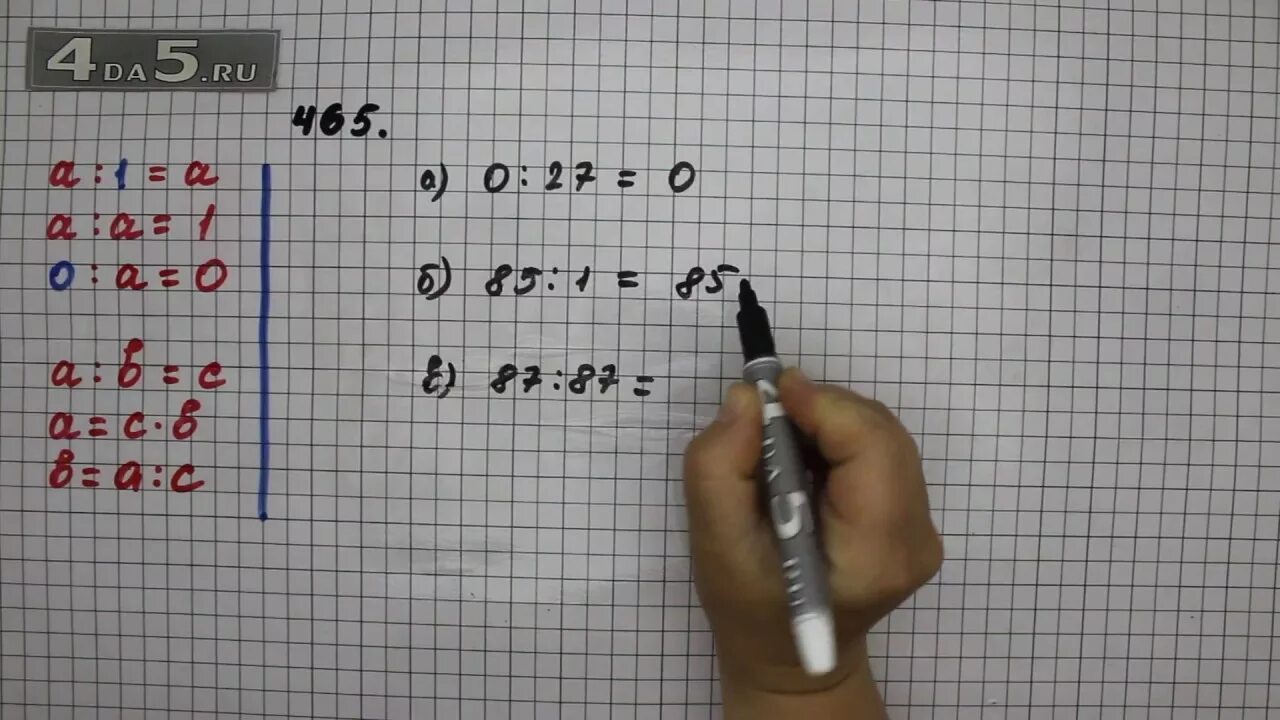 4DA5.RU
465.
a : 1 = a
a : a = 1
0 : a = 0
a : в = c
a = c · в
в = a : c
а) 0 : 27 = 0
б) 85 : 1 = 85
в) 87 : 87 =
4DA5.RU